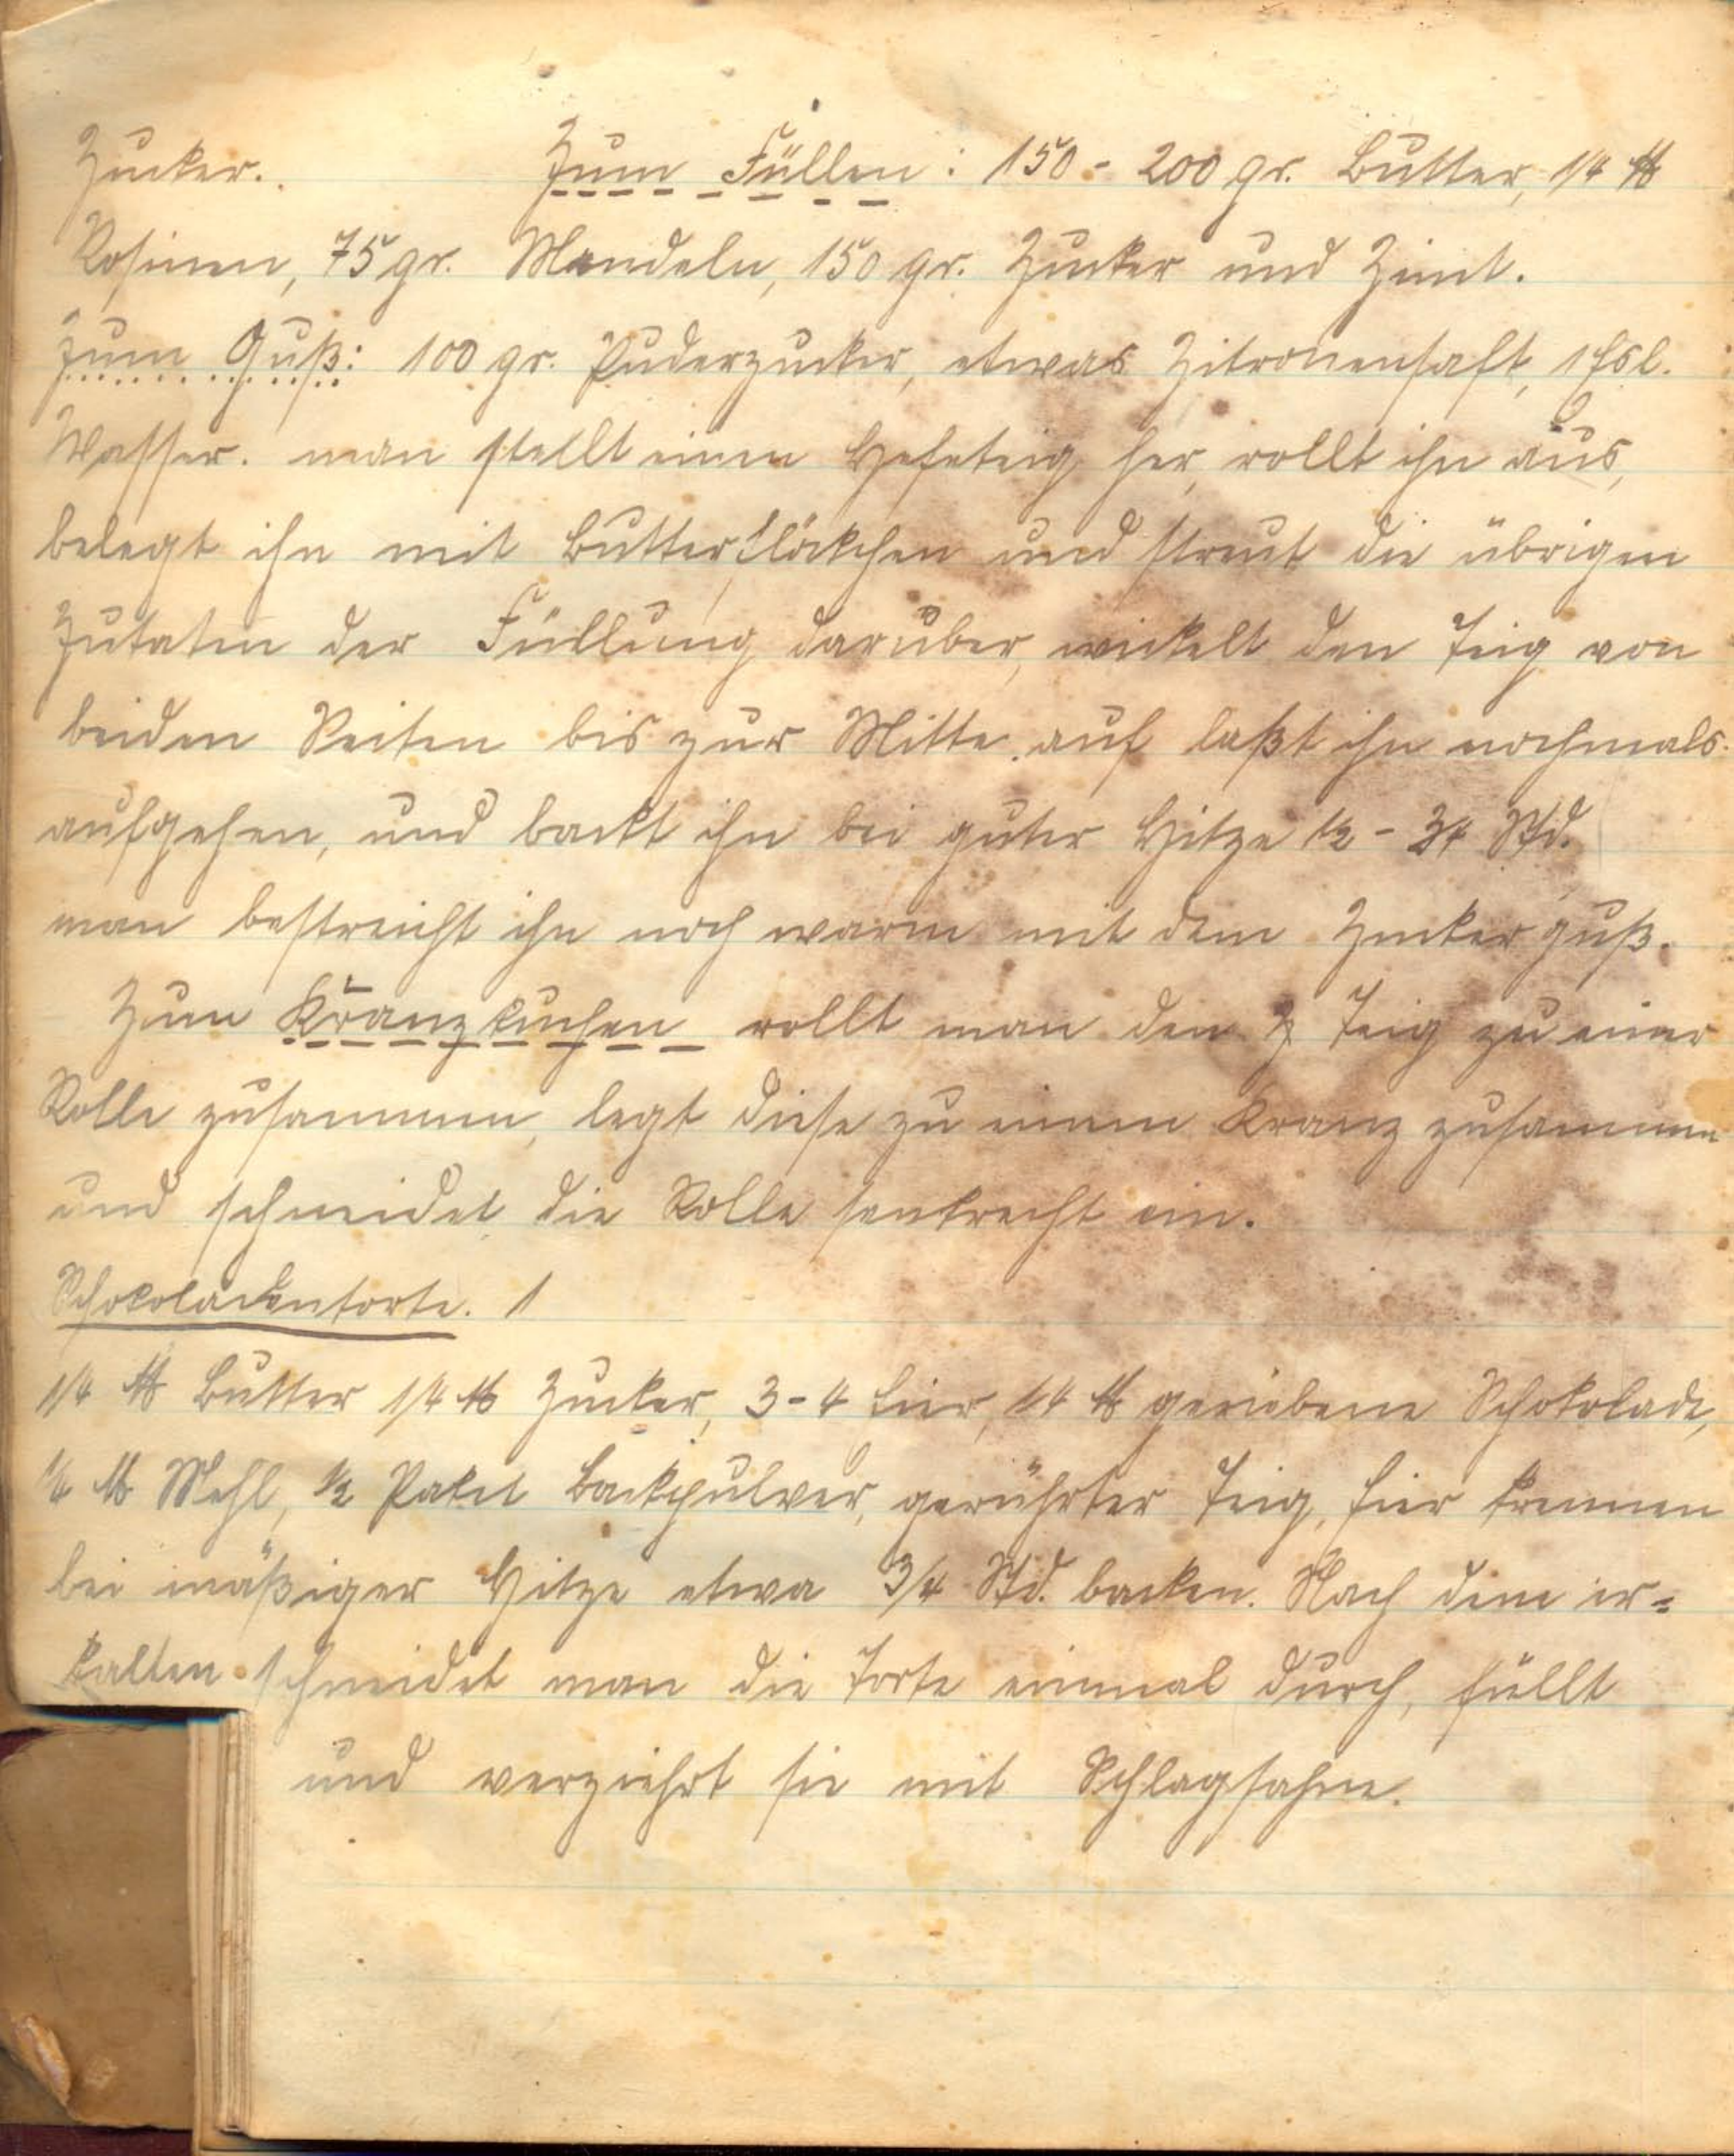 Zucker. Zum Füllen: 150 - 200 gr. Butter, 1/4 ℔
Rosinen, 75 gr. Mandeln, 150 gr. Zucker und Zimt.
Zum Guß: 100 gr. Puderzucker, etwas Zitronensaft, 1 Esl.
Wasser. man stellt einen Hefeteig her, rollt ihn aus,
belegt ihn mit Butterflöckchen und streut die übrigen
Zutaten der Füllung darüber, wickelt den Teig von
beiden Seiten bis zur Mitte auf laßt ihn nochmals
aufgehen, und backt ihn bei guter Hitze 1/2 - 3/4 Std.
man bestreicht ihn noch warm mit dem Zuckerguß.
Zum Kranzkuchen rollt man den Teig zu einer
Rolle zusammen, legt diese zu einem Kranz zusammen
und schneidet die Rolle senkrecht ein.
Schokoladentorte. 1
1/4 ℔ Butter 1/4 ℔ Zucker, 3-4 Eier, 1/4 ℔ geriebene Schokolade,
1/4 ℔ Mehl, 1/2 Paket Backpulver, gerührter Teig, Eier trennen
bei mäßiger Hitze etwa 3/4 Std. backen. Nach dem er=
kalten schneidet man die Torte einmal durch, füllt
und verziehrt sie mit Schlagsahne.